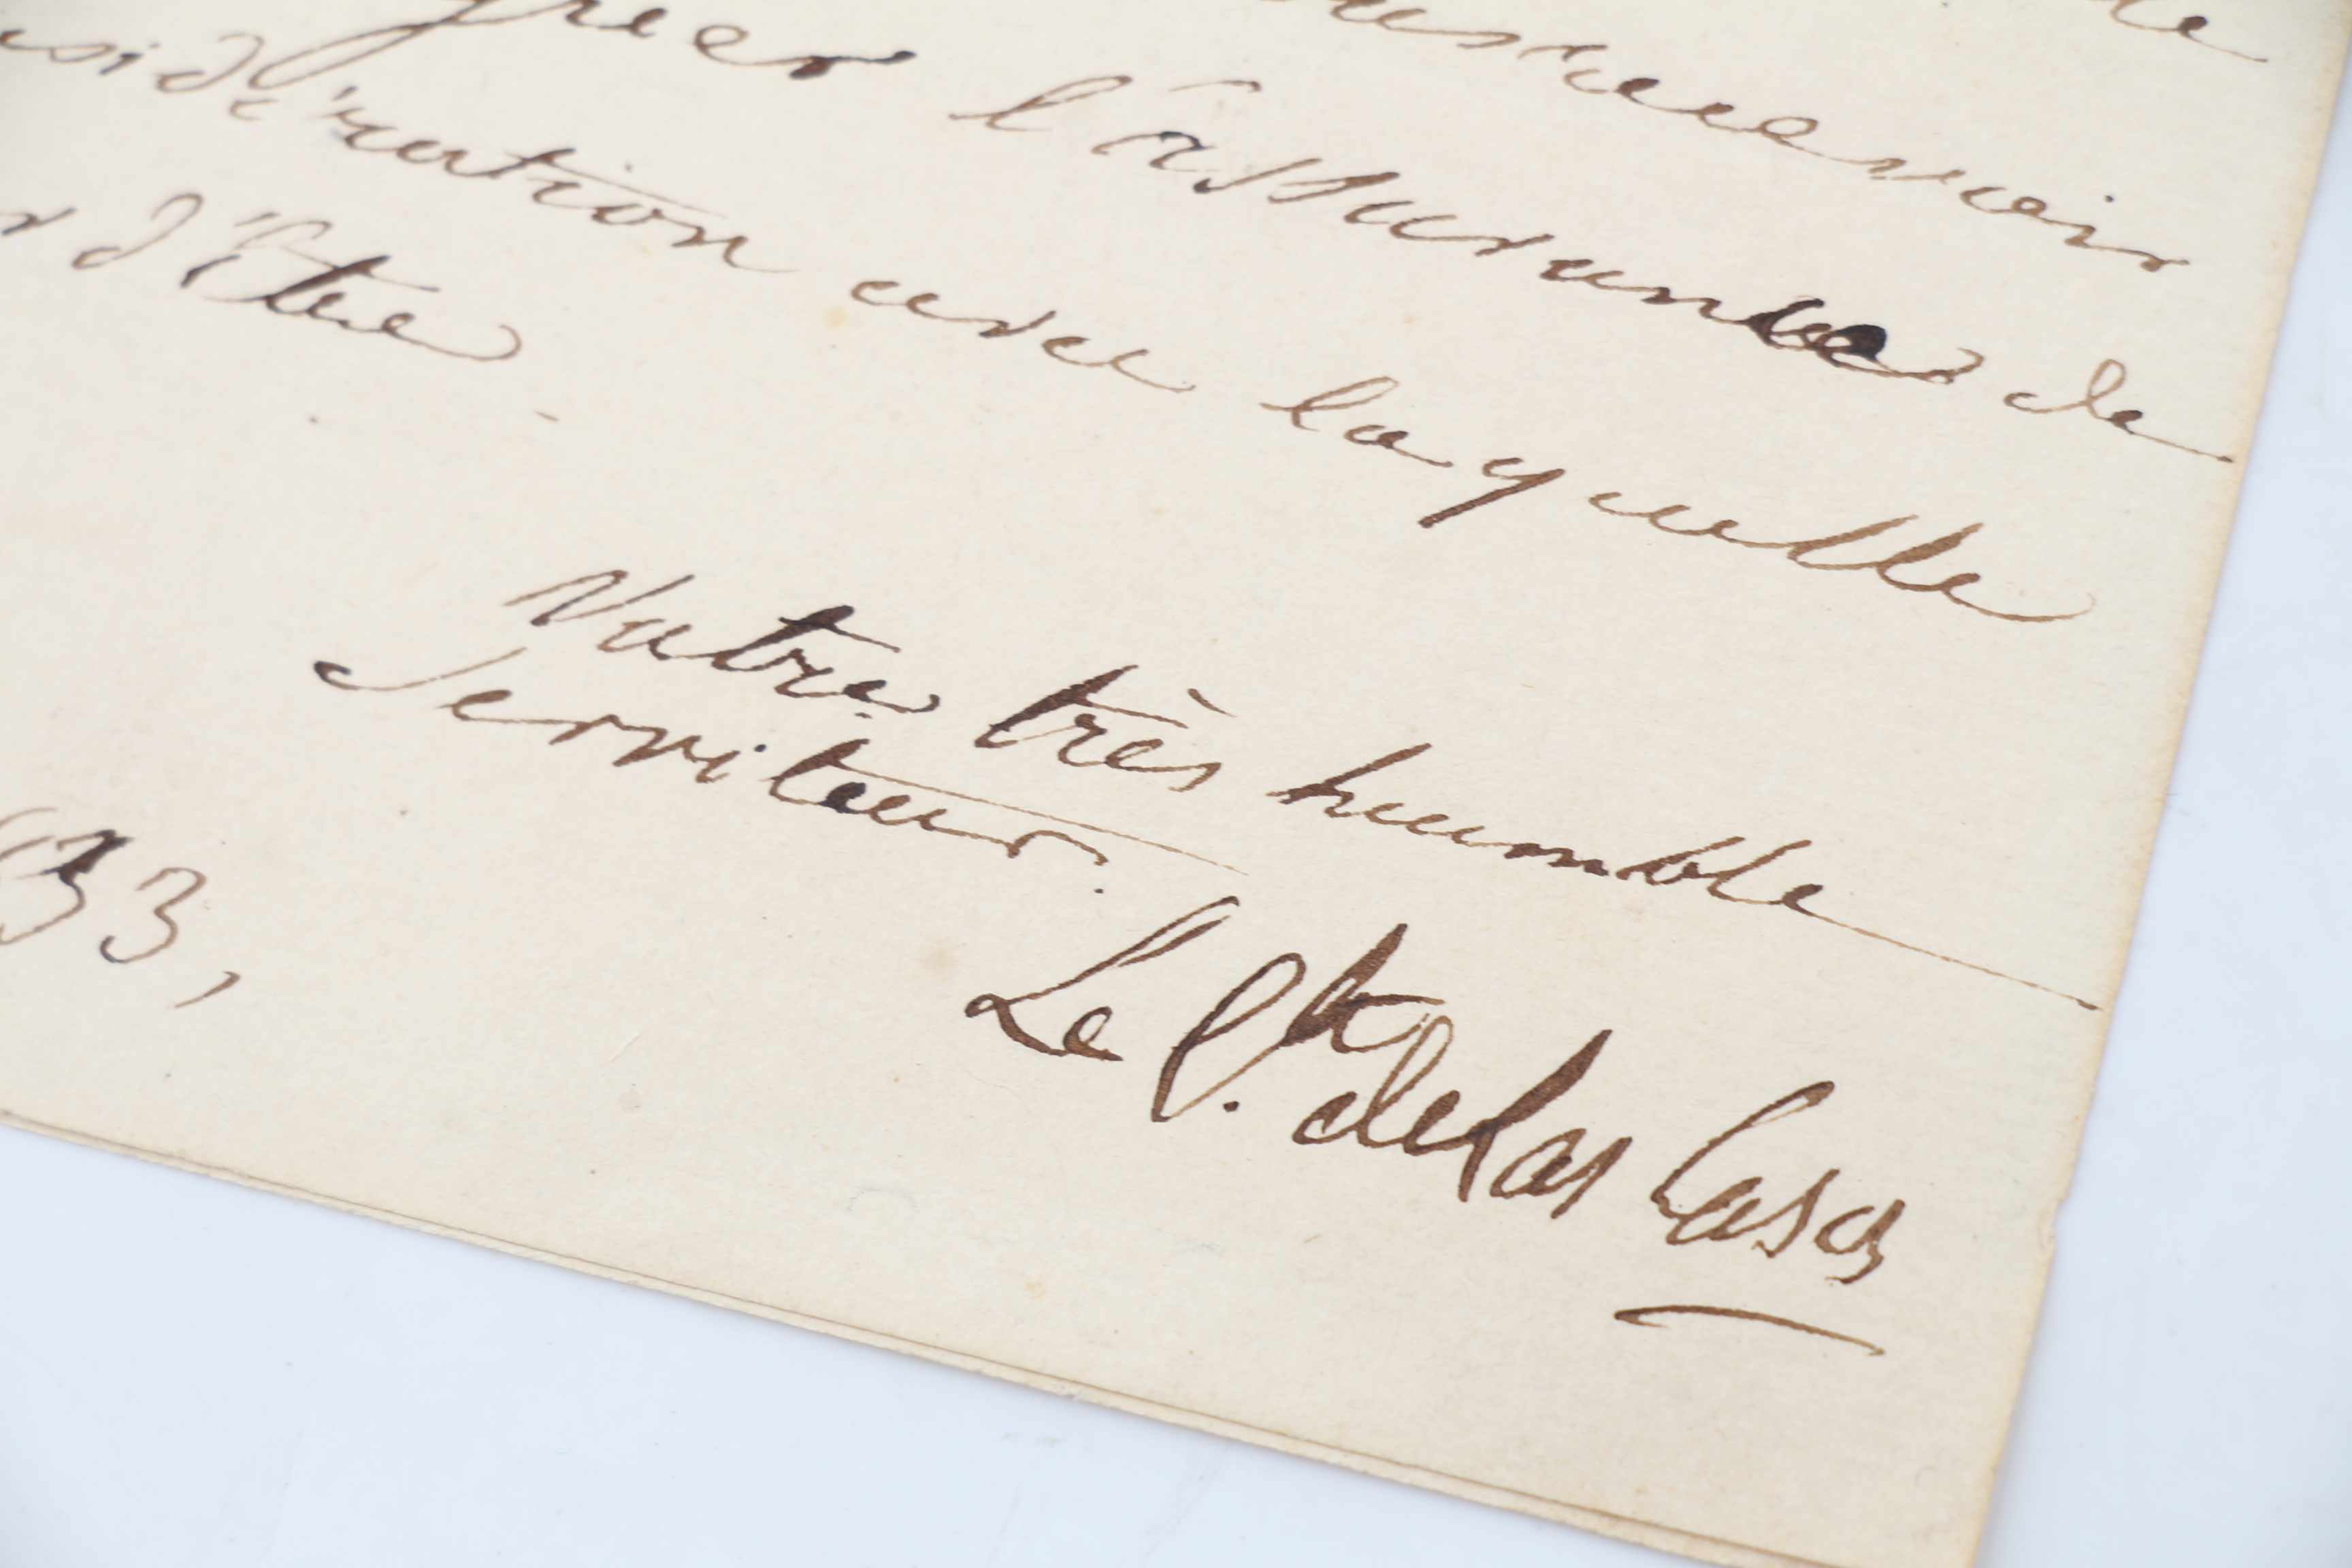 de
agréer l'assurance de
considération avec laquelle
d'être
Votre très humble
Serviteur.
33,
Le Cte de Las Cases